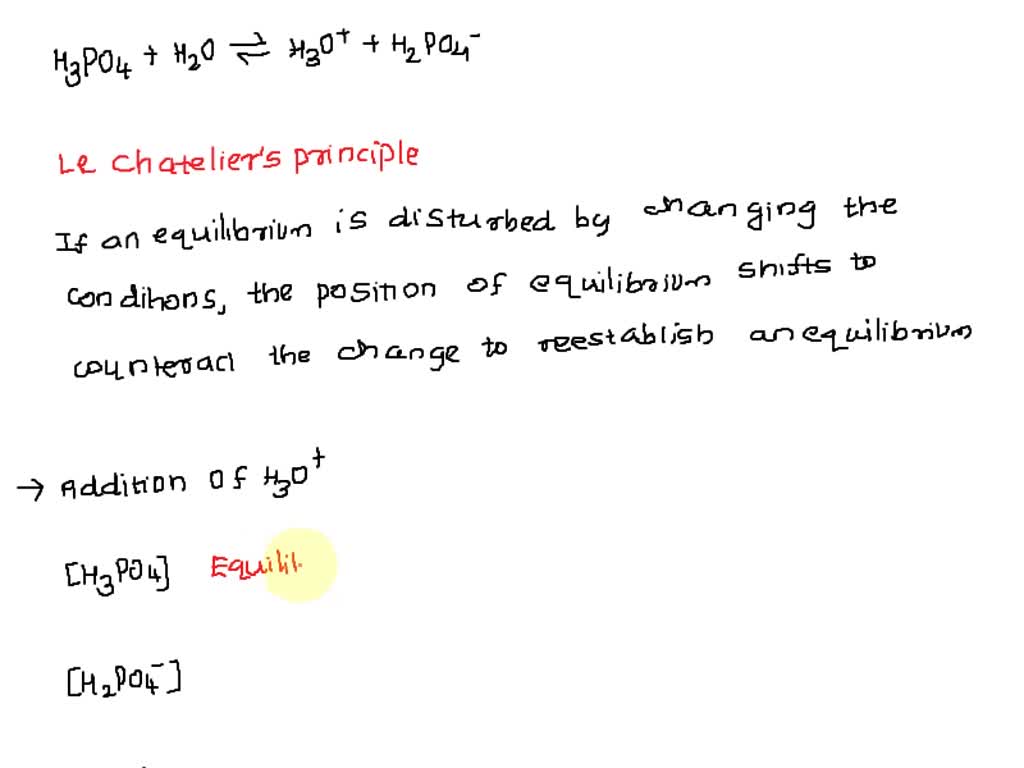 H₃PO₄ + H₂O ⇌ H₃O⁺ + H₂PO₄⁻
Le Chatelier's principle
If an equilibrium is disturbed by changing the
conditions, the position of equilibrium shifts to
counteract the change to reestablish an equilibrium
→ Addition of H₃O⁺
[H₃PO₄] Equilib
[H₂PO₄⁻]